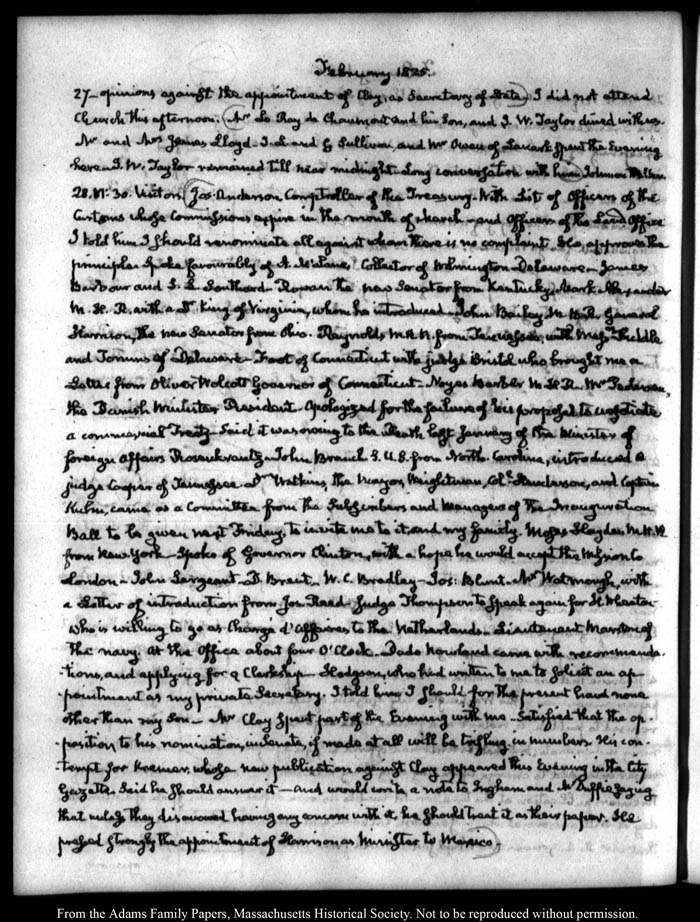 February 1825.
27— opinions against the appointment of Clay, as Secretary of State. I did not attend
Church this afternoon. Mr Le Ray de Chaumont and his Son, and J. W. Taylor dined with us.
Mr and Mrs James Lloyd— J. L. and G Sullivan, and Mr Owen of Lanark spent the Evening
here— J. W. Taylor remained till near midnight— Long conversation with him. Johnson Hellen.
28. VI: 30. Visitors Jos: Anderson Comptroller of the Treasury— With List of Officers of the
Customs whose Commissions expire in the month of March— and Officers of the Land Office
I told him I should renominate all against whom there is no complaint. He approves the
principle. Spoke favourably of A. McLane, Collector of Wilmington Delaware— James
Barbour and S. L. Southard— Rowan the new Senator from Kentucky. Mark Alexander
M. H. R. with a Dr King of Virginia, whom he introduced— John Bailey M. H. R. General
Harrison, the new Senator from Ohio. Reynolds, M. H. R. from Tennessee, with Messrs
and of Delaware— Foot of Connecticut with judge Bristol who brought me a
Letter from Oliver Wolcott Governor of Connecticut— Noyes Barber M. H. R. Mr Pedersen,
the Danish Minister Resident— Apologized for the failure of his proposal to negotiate
a commercial Treaty— Said it was owing to the death last January of the Minister of
foreign Affairs Rosenkrantz— John Branch S. U. S. from North Carolina, introduced a
judge Cooper of Tennessee. Dr Watkins, the Mayor, Weightman, Coll Henderson, and Captain
Kuhn, came as a Committee from the Subscribers and Managers of the Inauguration
Ball to be given next Friday, to invite me to it, and my family. Moses Hayden M. H. R
from New York— Spoke of Governor Clinton, with a hope he would accept the Mission to
London— John Sergeant— D. Brent— W. C. Bradley— Jos: Blunt. Mr Watmough, with
a Letter of introduction from Jos. Reed— Judge Thompson to speak again for H. Wheaton
who is willing to go as Chargé d'Affaires to the Netherlands— Lieutenant Marston of
the navy. At the Office about four O'Clock— Dade came with recommenda-
-tions, and applying for a Clerkship— Hodgson, who had written to me to solicit an ap-
-pointment as my private Secretary. I told him I should for the present have none
other than my Son— Mr Clay spent part of the Evening with me— Satisfied that the op-
-position to his nomination, in Senate, if made at all will be trifling in numbers. His con-
-tempt for Kremer, whose new publication against Clay appeared this Evening in the City
Gazette. Said he should answer it— and would write a note to Ingham and McDuffie saying
that unless they disavowed having any concern with it, he should treat it as their paper. He
pressed strongly the appointment of Harrison as Minister to Mexico.
From the Adams Family Papers, Massachusetts Historical Society. Not to be reproduced without permission.